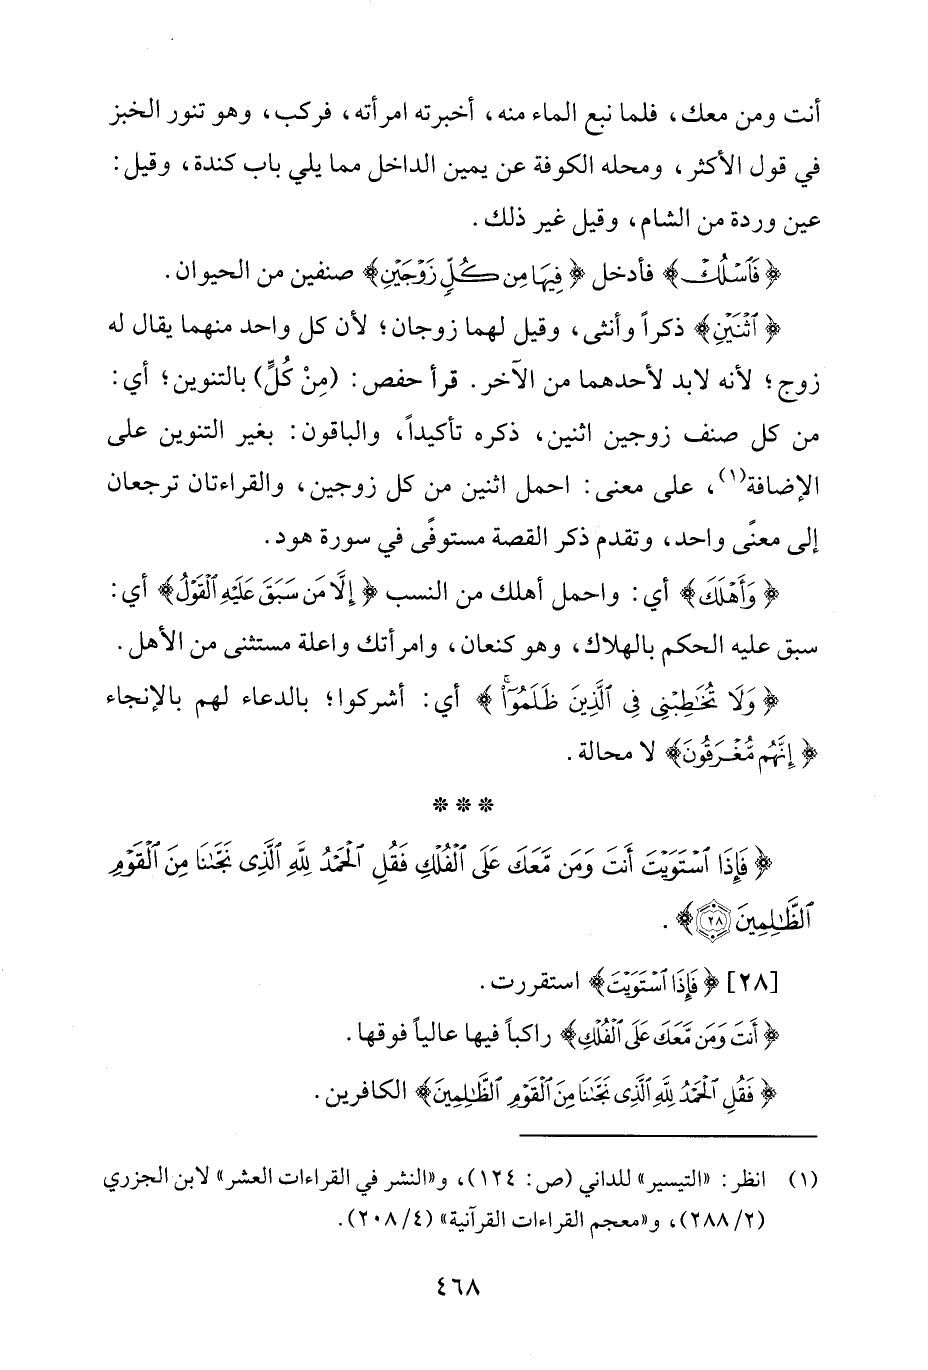 أنت ومن معك، فلما نبع الماء منه، أخبرته امرأته، فركب، وهو تنور الخبز
في قول الأكثر، ومحله الكوفة عن يمين الداخل مما يلي باب كندة، وقيل:
عين وردة من الشام، وقيل غير ذلك.
﴿فَٱسْلُكْ﴾ فأدخل ﴿فِيهَا مِن كُلٍّ زَوْجَيْنِ﴾ صنفين من الحيوان.
﴿ٱثْنَيْنِ﴾ ذكراً وأنثى، وقيل لهما زوجان؛ لأن كل واحد منهما يقال له
زوج؛ لأنه لابد لأحدهما من الآخر. قرأ حفص: (مِنْ كُلٍّ) بالتنوين؛ أي:
من كل صنف زوجين اثنين، ذكره تأكيداً، والباقون: بغير التنوين على
الإضافة(١)، على معنى: احمل اثنين من كل زوجين، والقراءتان ترجعان
إلى معنًى واحد، وتقدم ذكر القصة مستوفًى في سورة هود.
﴿وَأَهْلَكَ﴾ أي: واحمل أهلك من النسب ﴿إِلَّا مَن سَبَقَ عَلَيْهِ ٱلْقَوْلُ﴾ أي:
سبق عليه الحكم بالهلاك، وهو كنعان، وامرأتك واعلة مستثنى من الأهل.
﴿وَلَا تُخَٰطِبْنِي فِي ٱلَّذِينَ ظَلَمُوٓا۟ۚ﴾ أي: أشركوا؛ بالدعاء لهم بالإنجاء
﴿إِنَّهُم مُّغْرَقُونَ﴾ لا محالة.
* * *
﴿فَإِذَا ٱسْتَوَيْتَ أَنتَ وَمَن مَّعَكَ عَلَى ٱلْفُلْكِ فَقُلِ ٱلْحَمْدُ لِلَّهِ ٱلَّذِى نَجَّىٰنَا مِنَ ٱلْقَوْمِ
ٱلظَّٰلِمِينَ ٢٨﴾.
[٢٨] ﴿فَإِذَا ٱسْتَوَيْتَ﴾ استقررت.
﴿أَنتَ وَمَن مَّعَكَ عَلَى ٱلْفُلْكِ﴾ راكباً فيها عالياً فوقها.
﴿فَقُلِ ٱلْحَمْدُ لِلَّهِ ٱلَّذِى نَجَّىٰنَا مِنَ ٱلْقَوْمِ ٱلظَّٰلِمِينَ﴾ الكافرين.
(١) انظر: «التيسير» للداني (ص: ١٢٤)، و«النشر في القراءات العشر» لابن الجزري
(٢/ ٢٨٨)، و«معجم القراءات القرآنية» (٤/ ٢٠٨).
٤٦٨